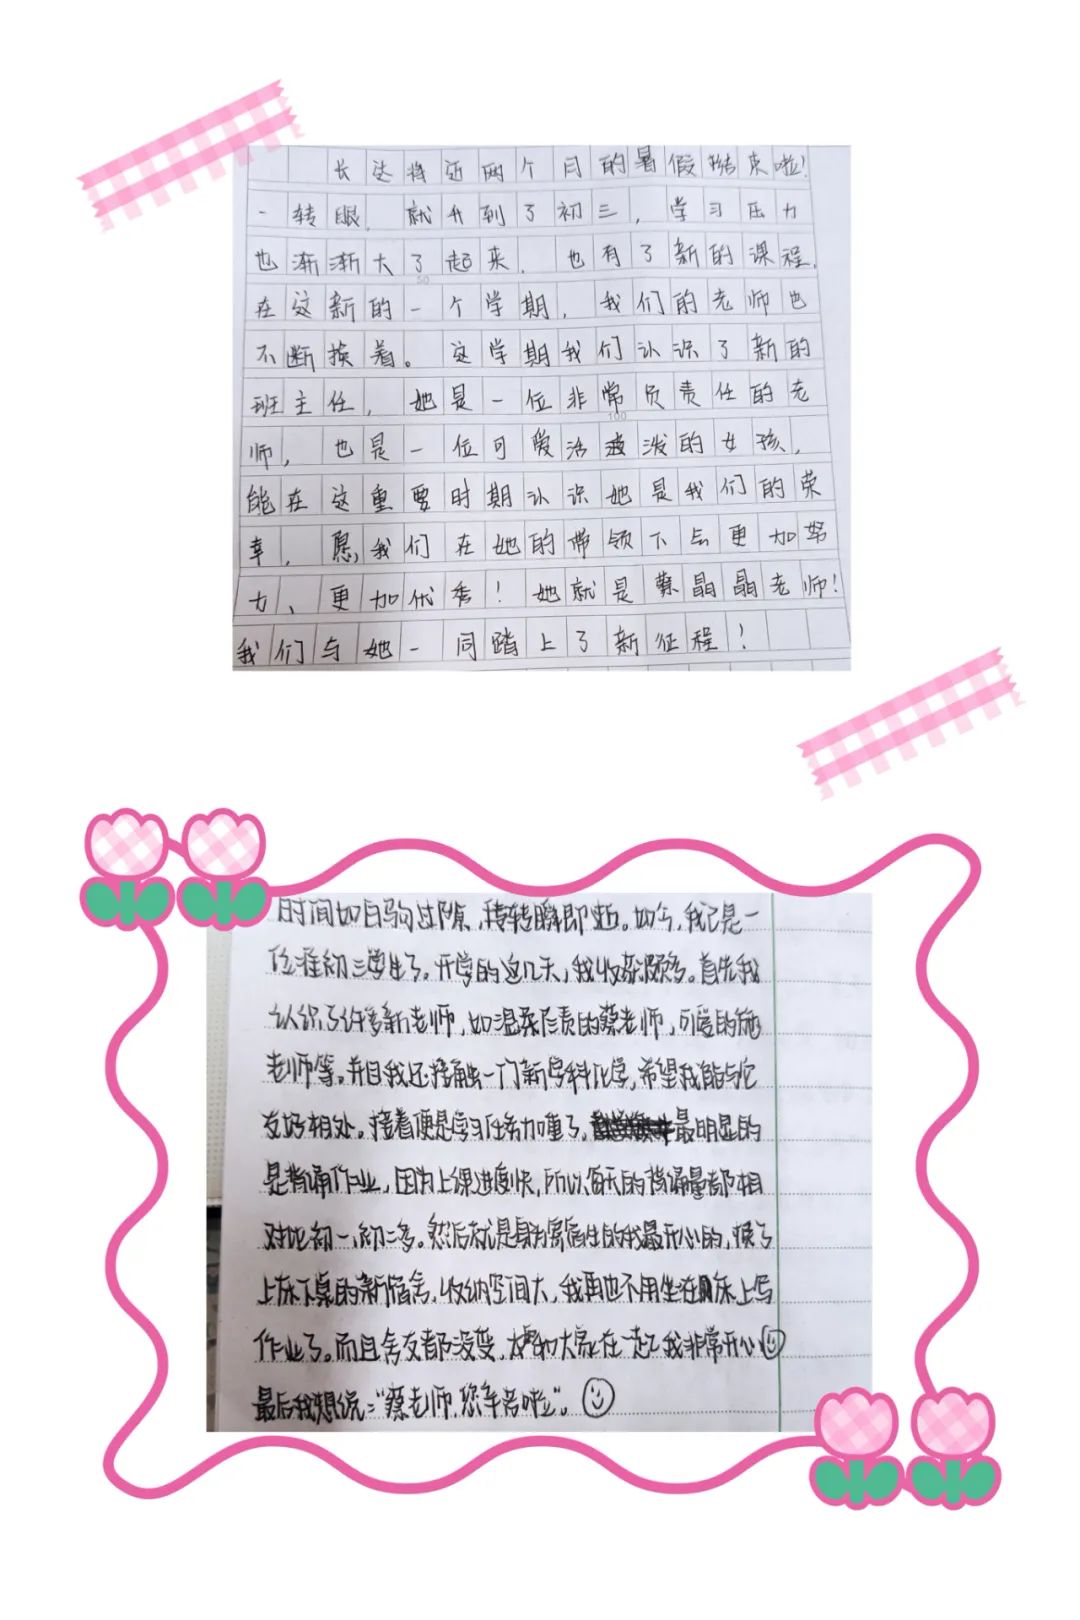 长达将近两个月的暑假结束啦!
一转眼,就升到了初三,学习压力
也渐渐大了起来,也有了新的课程,
50
在这新的一个学期,我们的老师也
不断换着。这学期我们认识了新的
班主任,她是一位非常负责任的老
100
师,也是一位可爱活泼的女孩,
能在这重要时期认识她是我们的荣
幸,愿我们在她的带领下后更加努
力、更加优秀!她就是蔡晶晶老师!
我们与她一同踏上了新征程!
时间如白驹过隙,转瞬即逝。如今,我已是一
位准初三学生了。开学的这几天,我收获颇多。首先我
认识了许多新老师,如温柔尽责的蔡老师,可爱的施
老师等。并且我还接触一门新学科化学,希望我能与它
友好相处。接着便是学习任务加重了,最明显的
是背诵作业,因为上课进度快,所以每天的背诵量都相
对比初一、初二多。然后就是身为寄宿生的我最开心的,换了
上床下桌的新宿舍,收纳空间大,我再也不用坐在床上写
作业了。而且舍友都没变,和大家在一起我非常开心
最后我想说:“蔡老师,您辛苦啦”。